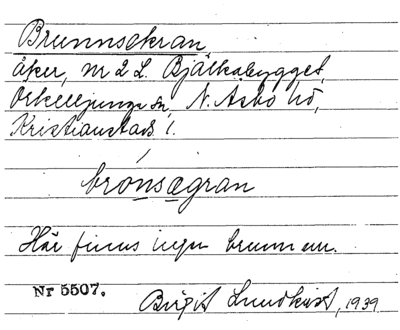 Brunnsekran,
åker, m 2 L. Bjälkabygget,
Örkelljunga sn, N. Åsbo hd,
Kristianstads l.
brónsægran
Här finns ingen brunn nu.
Nr 5507.
Birgit Lundkvist, 1939.